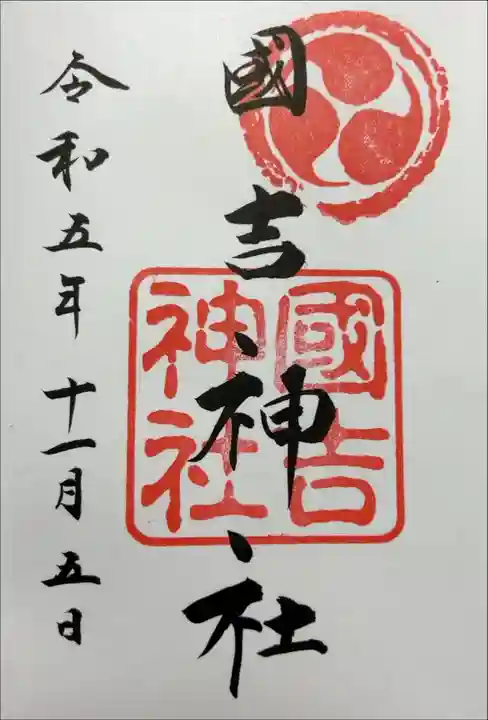 國吉神社
國吉
神社
令和五年十一月五日